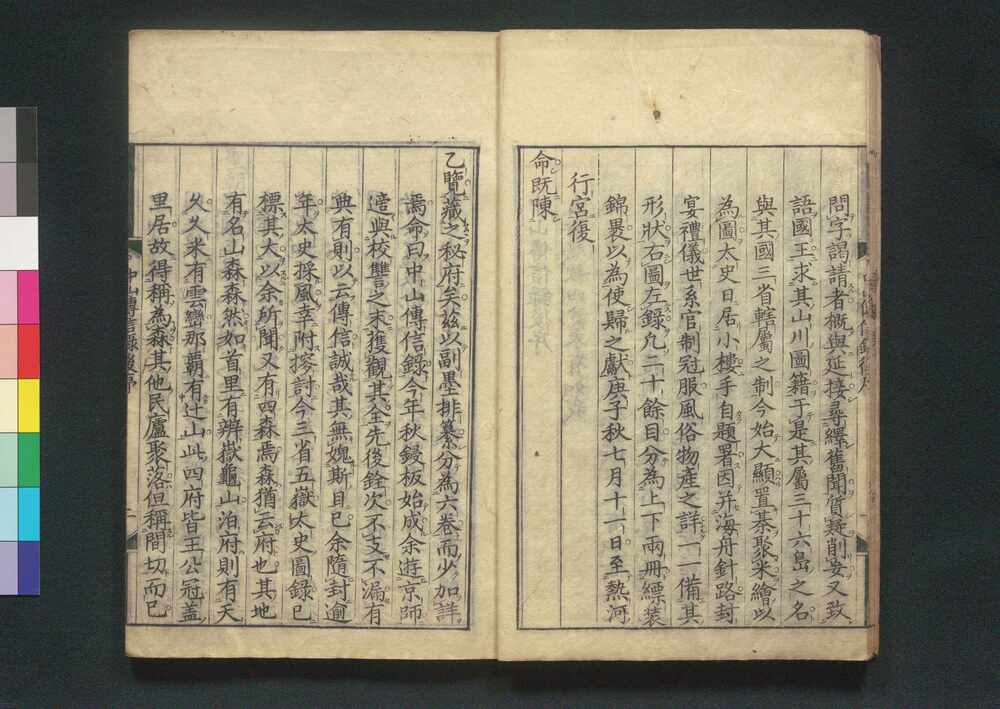 問字謁請者概與延接尋繹舊聞質疑削妄又致
語國王求其山川圖籍于是其屬三十六島之名
與其國三省轄屬之制今始大顯置綦聚米繪以
為圖太史日居小樓手自題署因并海舟針路封
宴禮儀世系官制冠服風俗物產之詳一一備其
形狀右圖左錄凡二十餘目分為上下兩冊縹裝
錦褁以為使歸之獻庚子秋七月十一日至熱河
行宮復
命既陳
乙覽藏之秘府矣茲以副墨排纂分為六卷而少加詳
焉命曰中山傳信錄今年秋鋟板始成余遊京師
適與校讐之末獲觀其全先後銓次不支不漏有
典有則以云傳信誠哉其無媿斯目已余隨封逾
年太史採風幸附搜討今三省五嶽太史圖錄已
標其大以余所聞又有四森焉森猶云府也其地
有名山森森然如首里有辨嶽龜山泊府則有天
久久米有雲巒那覇有辻山此四府皆王公冠蓋
里居故得稱為森其他民廬聚落但稱間切而已
中山傳信錄後序
二